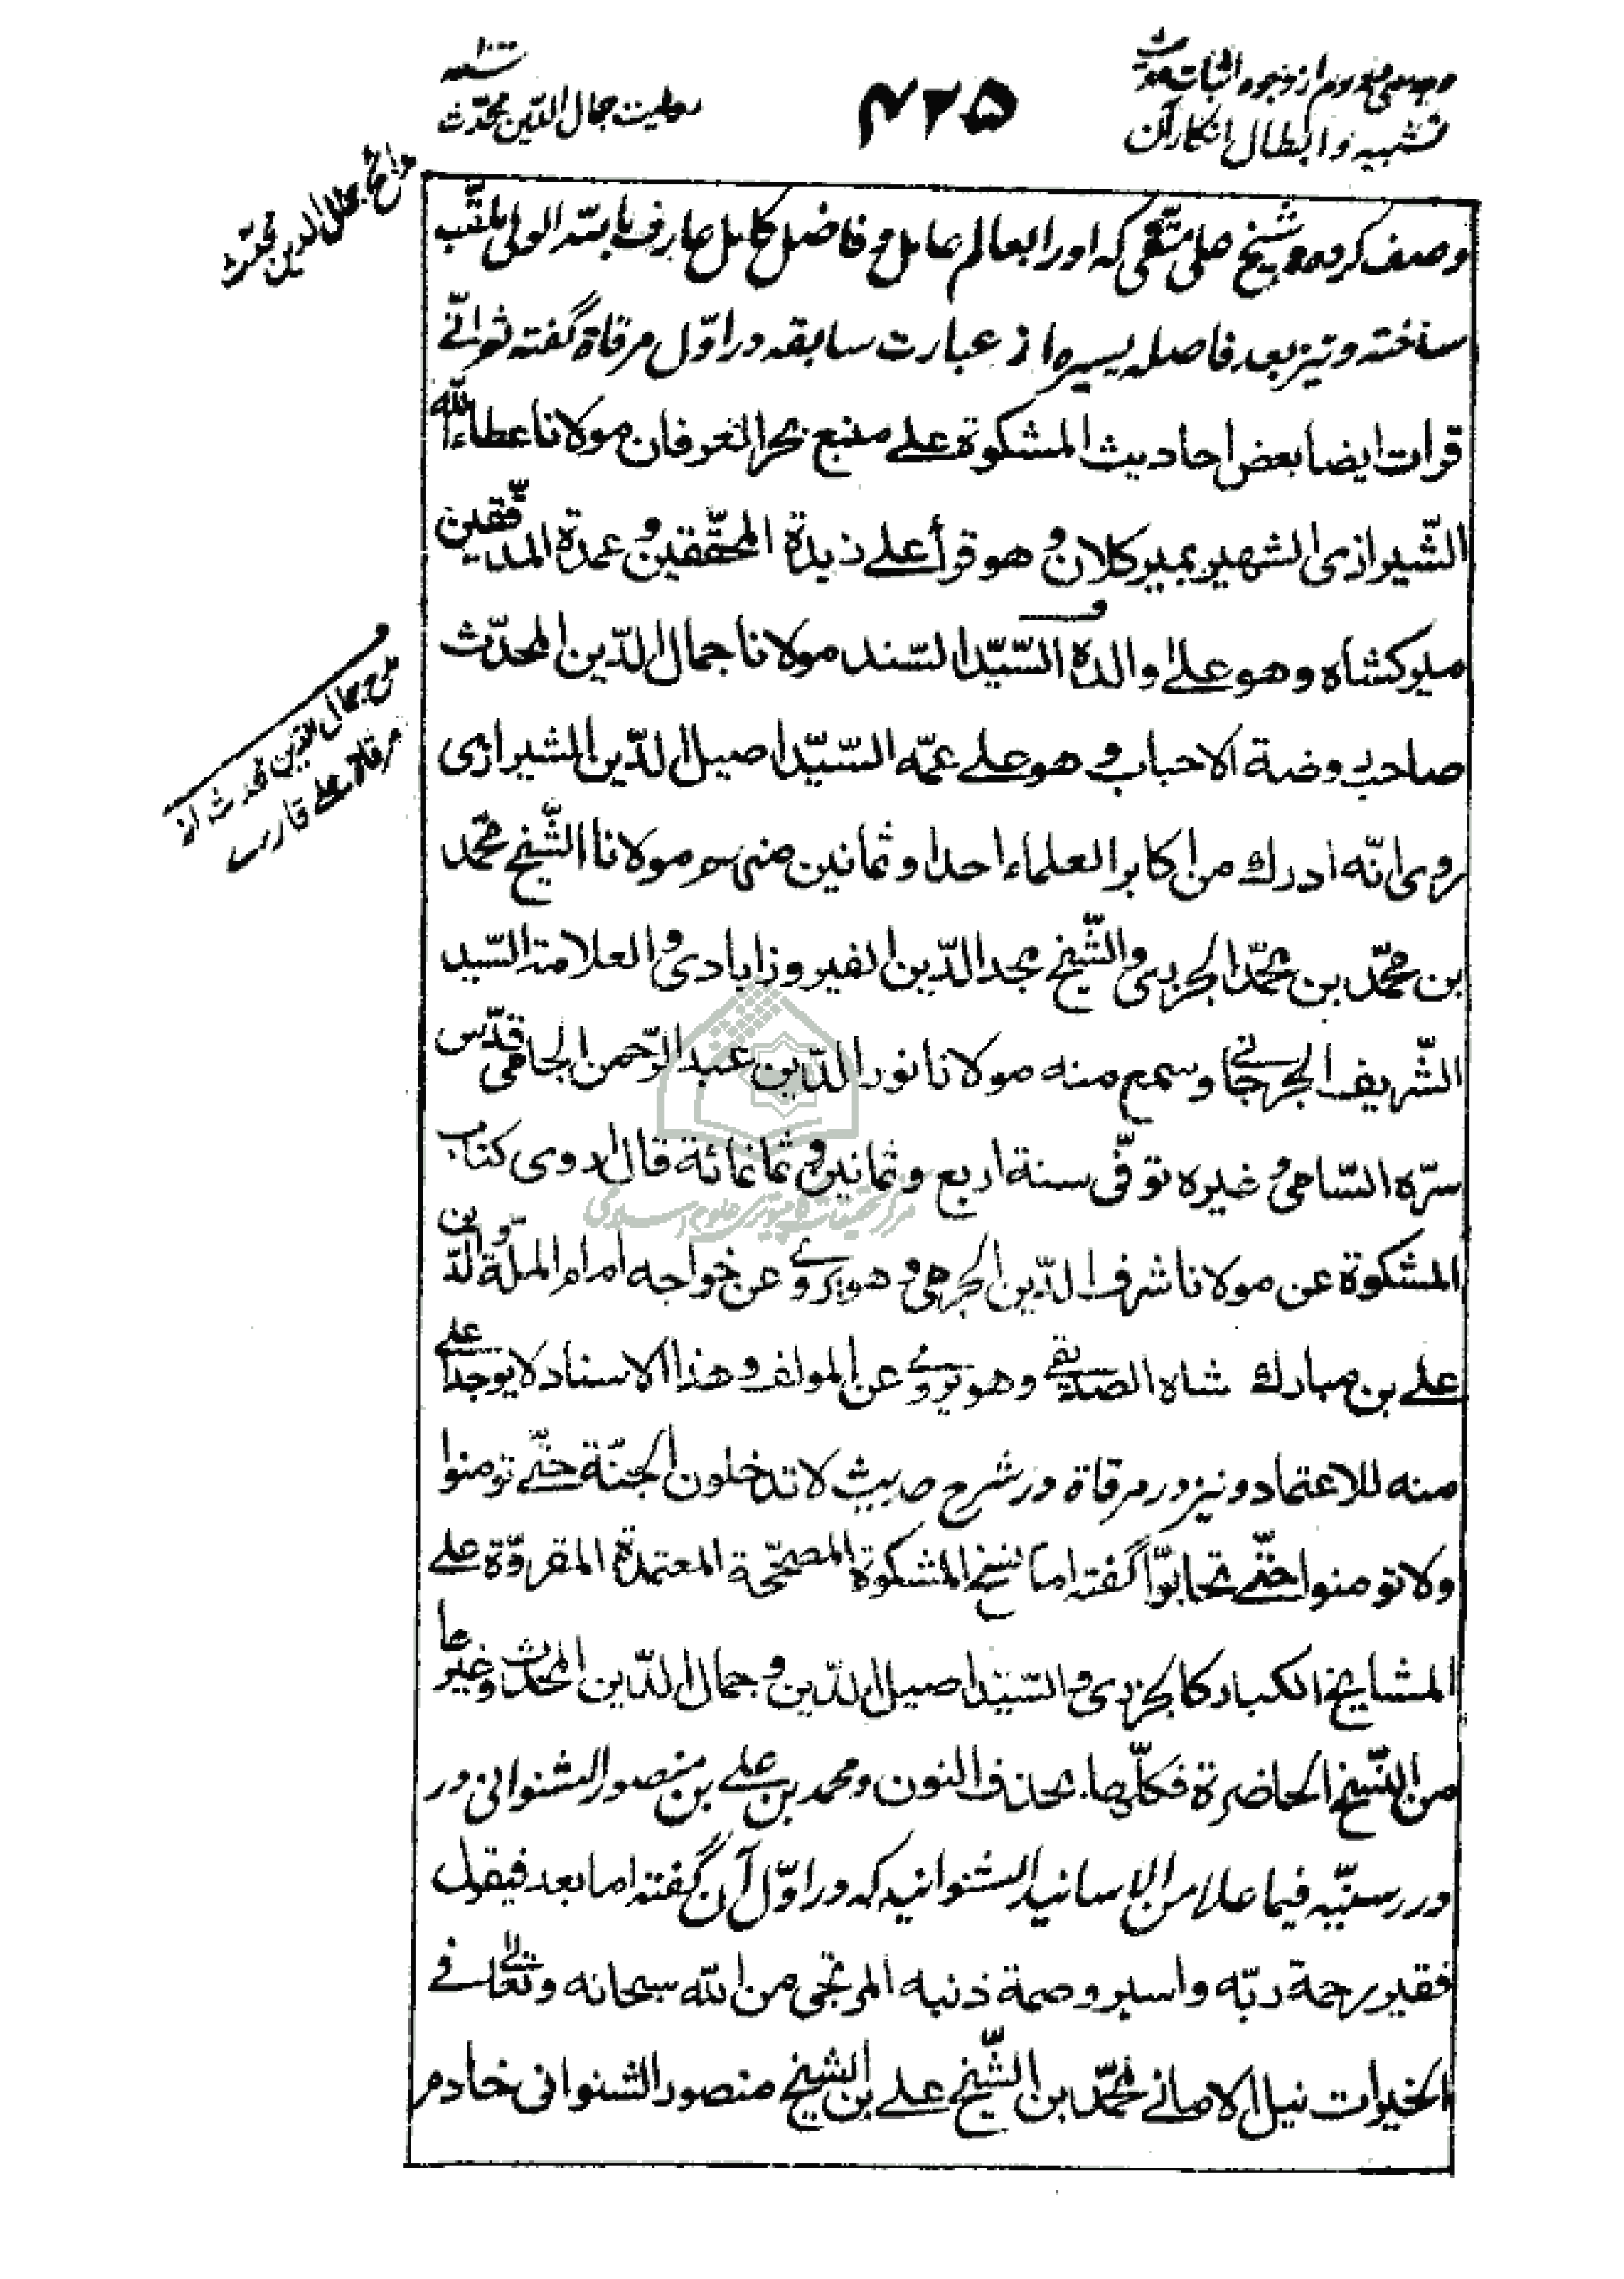 وجه صی و دوم از وجوه اثبات حدیث
تشبیه و ابطال انکار آن
۴۲۵
تتمه
روایت جمال الدّین محدّث
مدائح جمال الدین محدّث
وصف کرده و شیخ علی متّقی که او را بعالم عامل و فاضل کامل عارف باللّه الولی ملقّب
ساخته و نیز بعد فاصله یسیره از عبارت سابقه در اوّل مرقاة گفته ثم انّے
قرات ایضا بعض احادیث المشکوة علے منبع بحر العرفان مولانا عطاء اللّه
الشّیرازی الشهیر بمیر کلان و هو قرأ علے زبدة المحقّقین و عمدة المدقّقین
میرکشاه و هو علے والده السّیّد السّند مولانا جمال الدّین المحدّث
صاحب روضة الاحباب و هو علے عمّه السّیّد اصیل الدّین الشیرازی
روی انّه ادرك من اکابر العلماء احدا و ثمانین منهم مولانا الشّیخ محمد
بن محمّد بن محمّد الجزری و الشّیخ مجد الدّین الفیروزابادی و العلامة السّید
الشّریف الجرجانے و سمع منه مولانا نور الدّین عبد الرّحمن الجامی قدّس
سرّه السّامی و غیره توفّی سنة اربع و ثمانین و ثمانمائة قال اروی کتاب
المشکوة عن مولانا شرف الدّین الجرهی و هو یروے عن خواجه امام الملّة و الدّین
علے بن مبارك شاه الصدیقے و هو یروے عن المولف و هذا الاسناد لا یوجد اعلے
منه للاعتماد و نیز در مرقاة در شرح حدیث لا تدخلون الجنّة حتّے تومنوا
ولا تومنوا حتّے تحابّوا گفته اما نسخ المشکوة المصحّحة المعتمدة المقروّة علے
المشایخ الکبار کالجزری و السّیّد اصیل الدّین و جمال الدّین المحدّث و غیرها
من النّسخ الحاضرة فکلّها بحذف النون و محمد بن علے بن منصور الشنوانی در
درر سنیّه فیما علا من الاسانید الشنوانیه که در اوّل آن گفته اما بعد فیقول
فقیر رحمة ربّه و اسیر وصمة ذنبه المرتجی من اللّه سبحانه و تعالے فے
الخیرات نیل الامانے محمّد بن الشّیخ علے بن الشیخ منصور الشنوانی خادم
مدح جمال الدّین محدث از
مرقاة علے قاری
مرکز تحقیقات کامپیوتری علوم اسلامی